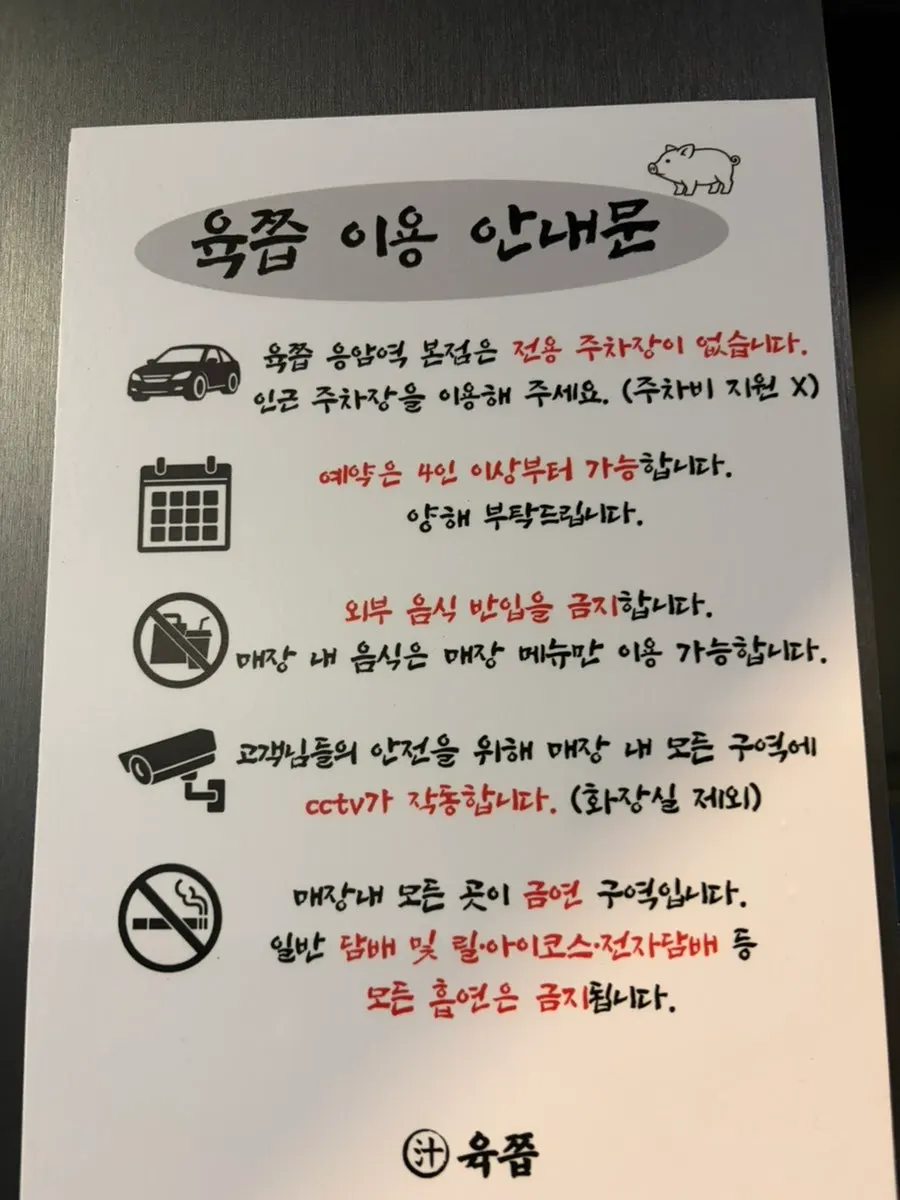 육쯥 이용 안내문
육쯥 응암역 본점은 전용 주차장이 없습니다.
인근 주차장을 이용해 주세요. (주차비 지원 X)
예약은 4인 이상부터 가능합니다.
양해 부탁드립니다.
외부 음식 반입을 금지합니다.
매장 내 음식은 매장 메뉴만 이용 가능합니다.
고객님들의 안전을 위해 매장 내 모든 구역에
cctv가 작동합니다. (화장실 제외)
매장내 모든 곳이 금연 구역입니다.
일반 담배 및 릴·아이코스·전자담배 등
모든 흡연은 금지됩니다.
汁 육쯥